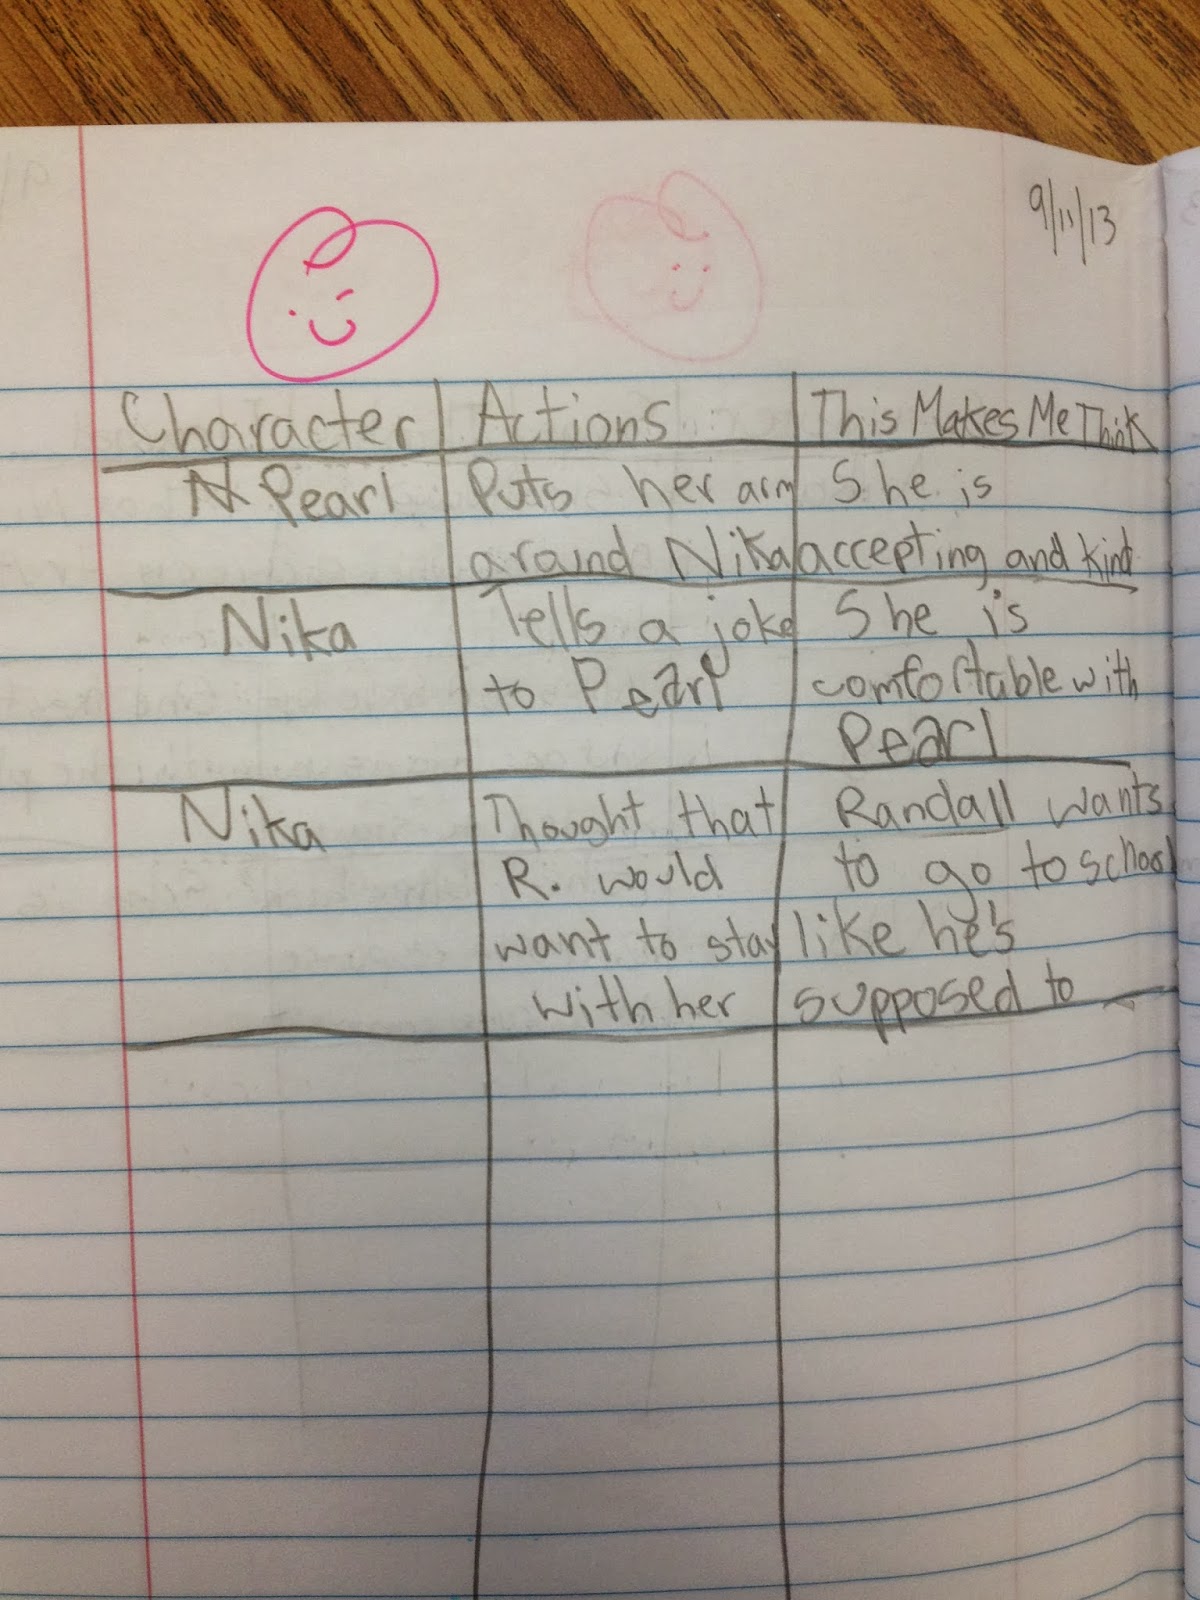 9/11/13
Character Actions This Makes Me Think
N Pearl Puts her arm She is
around Nika accepting and kind
Nika Tells a joke She is
to Pearl comfortable with
Pearl
Nika Thought that Randall wants
R. would to go to school
want to stay like he's
with her supposed to